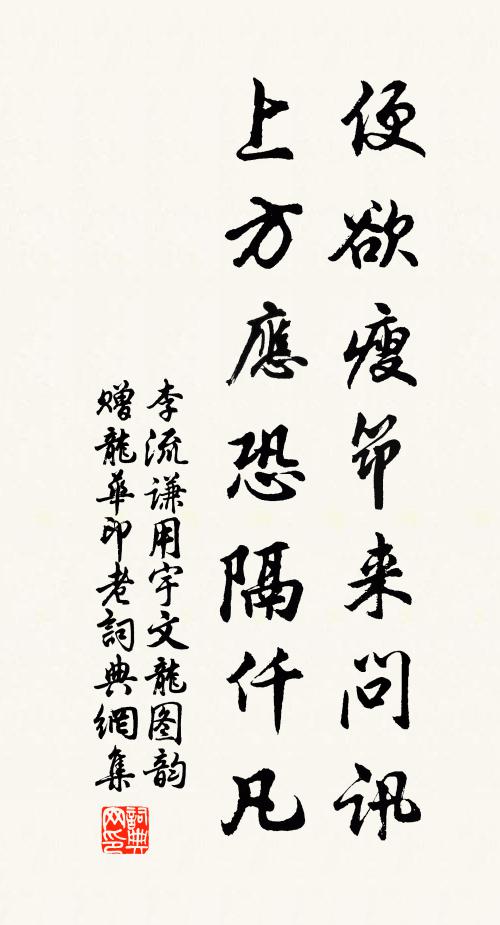 便欲瘦筇来問訊
上方應恐隔仟凡
李流謙用宇文龍图韵
贈龍華印老詞典網集
詞典網印